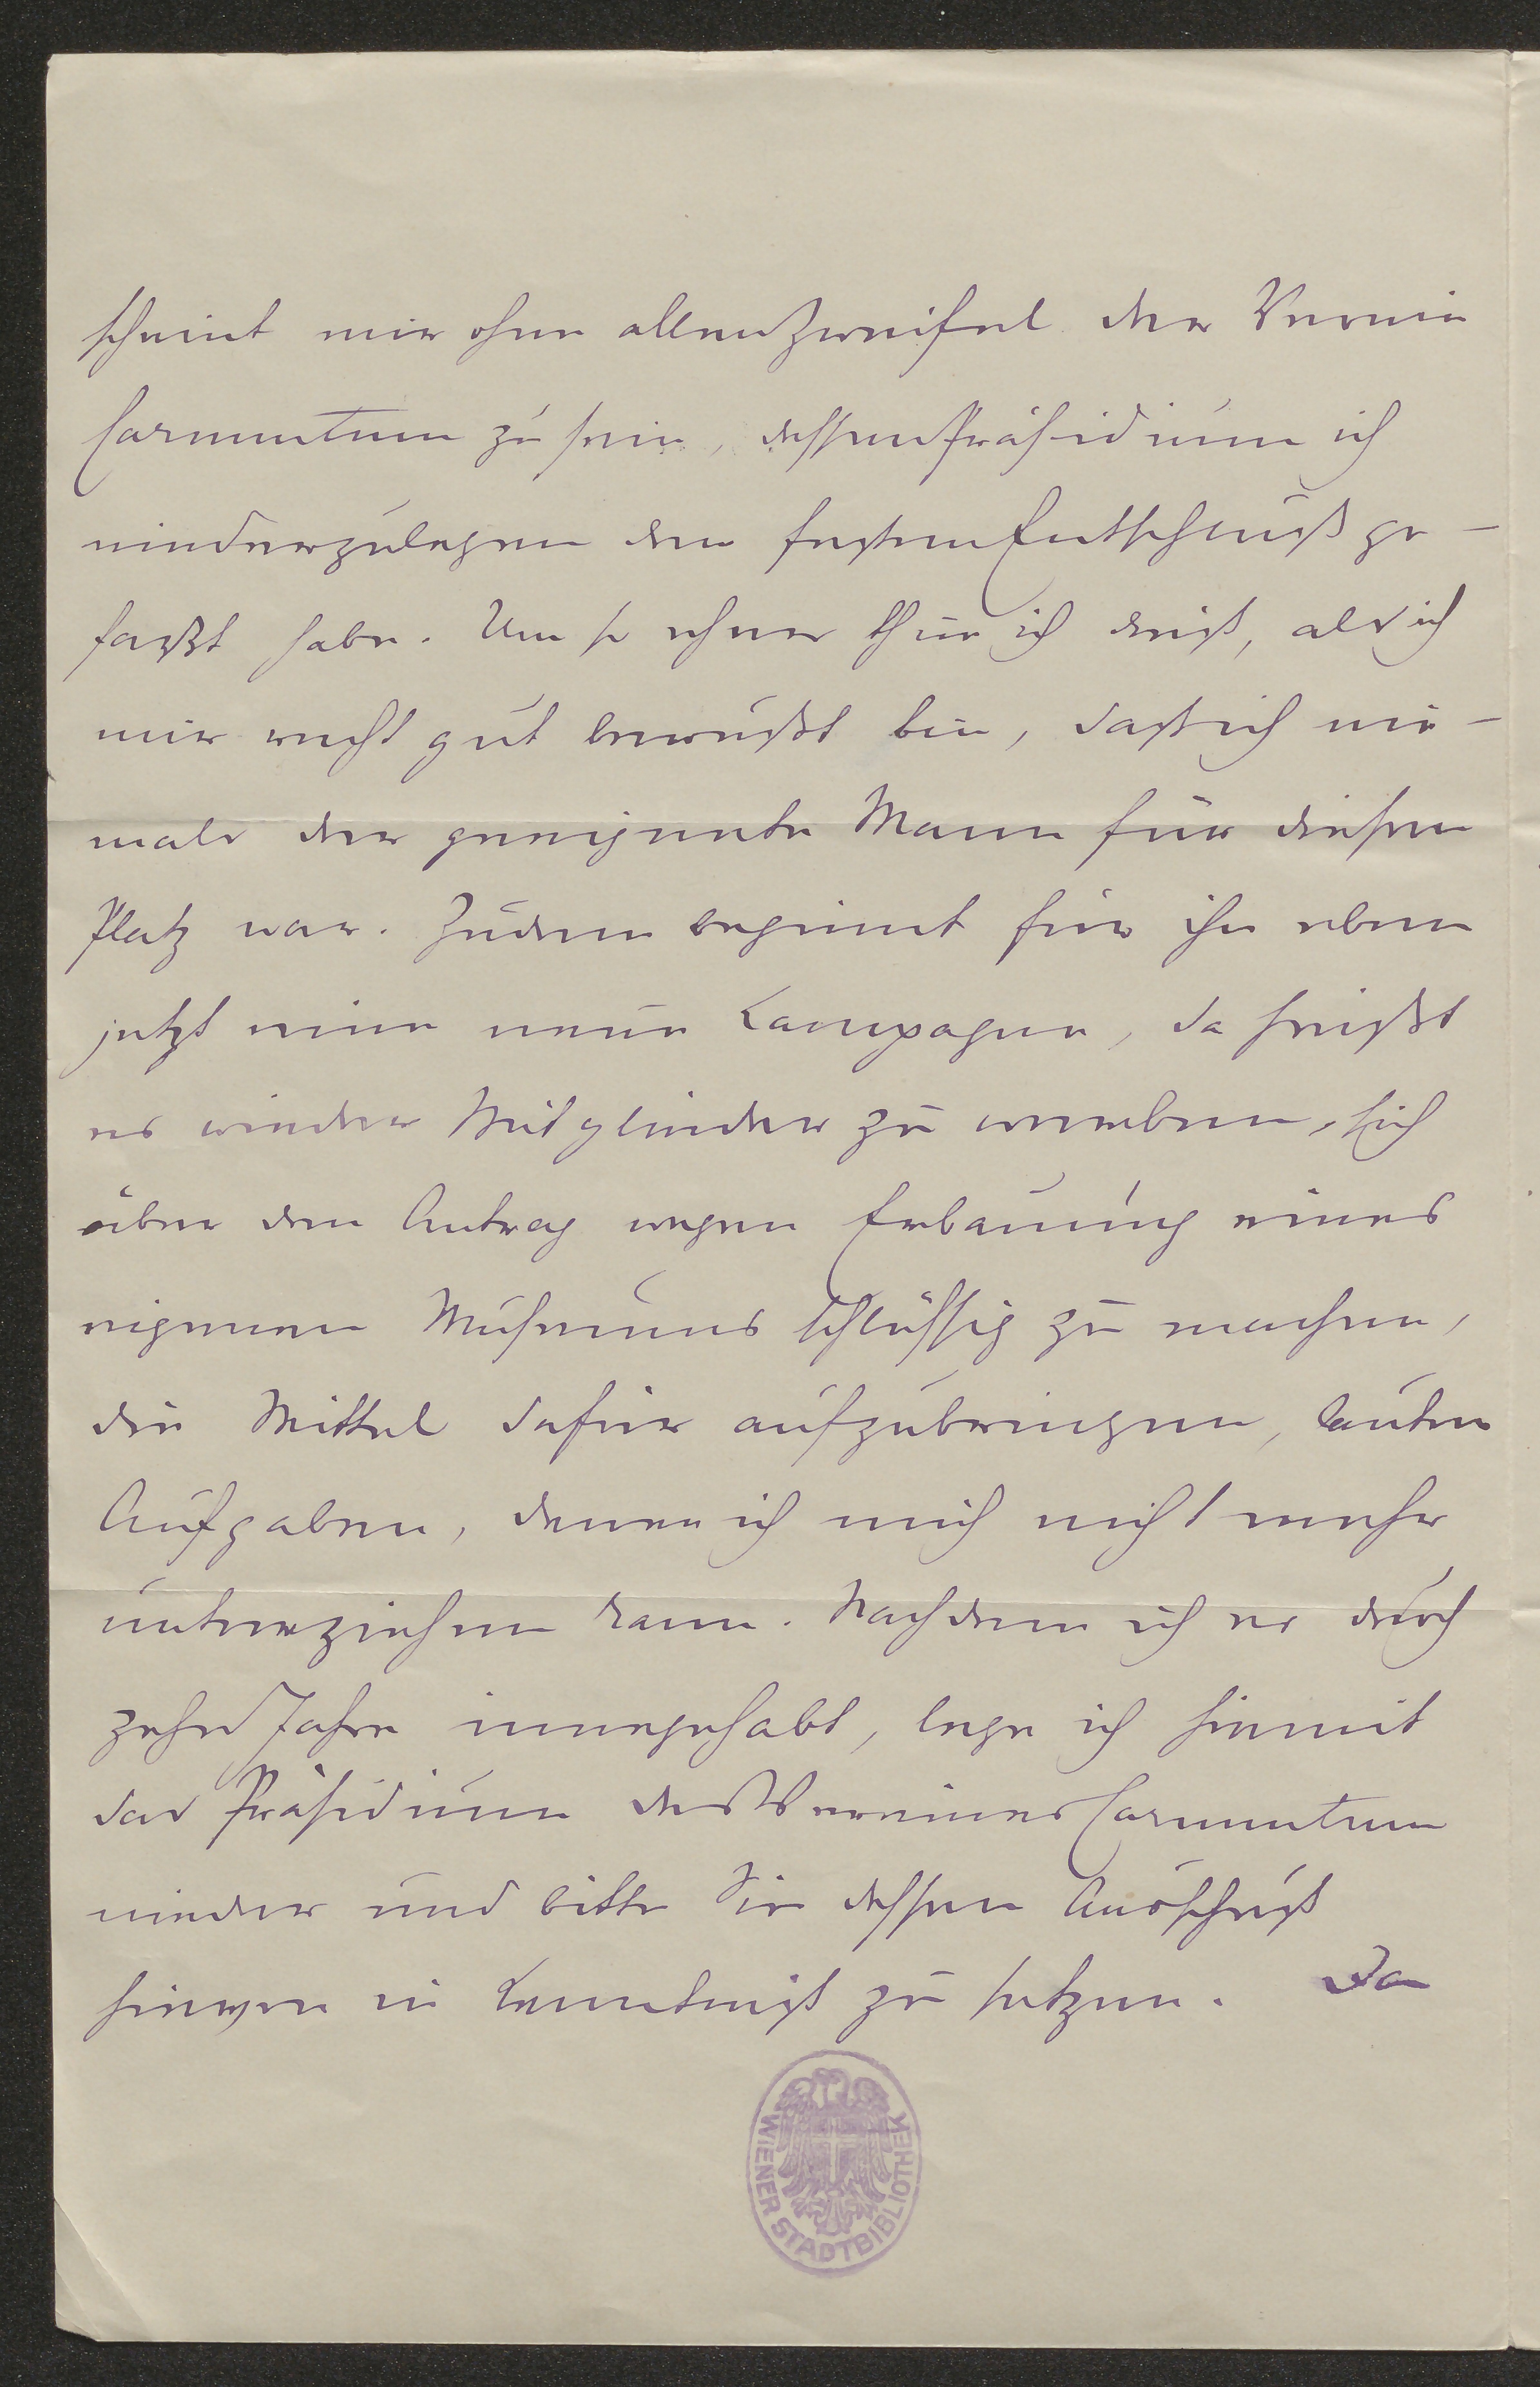 scheint mir ohne allen Zweifel der Verein
Carnuntum zu sein, dessen Präsidium ich
niederzulegen den festen Entschluß ge-
faßt habe. Um so eher thue ich dieß, als ich
mir recht gut bewußt bin, daß ich nie-
mals der geeignete Mann für diesen
Platz war. Zudem beginnt für ihn eben
jetzt eine neue Kampagne, da heißt
es wieder Mitglieder zu werben, sich
über den Antrag wegen Erbauung eines
eigenen Museums schlüssig zu machen,
die Mittel dafür aufzubringen, lauter
Aufgaben, denen ich mich nicht mehr
unterziehen kann. Nachdem ich es durch
zehn Jahre innegehabt, lege ich hiemit
das Präsidium des Vereines Carnuntum
nieder und bitte Sie dessen Ausschuß
hievon in Kenntniß zu setzen. Da
WIENER STADTBIBLIOTHEK